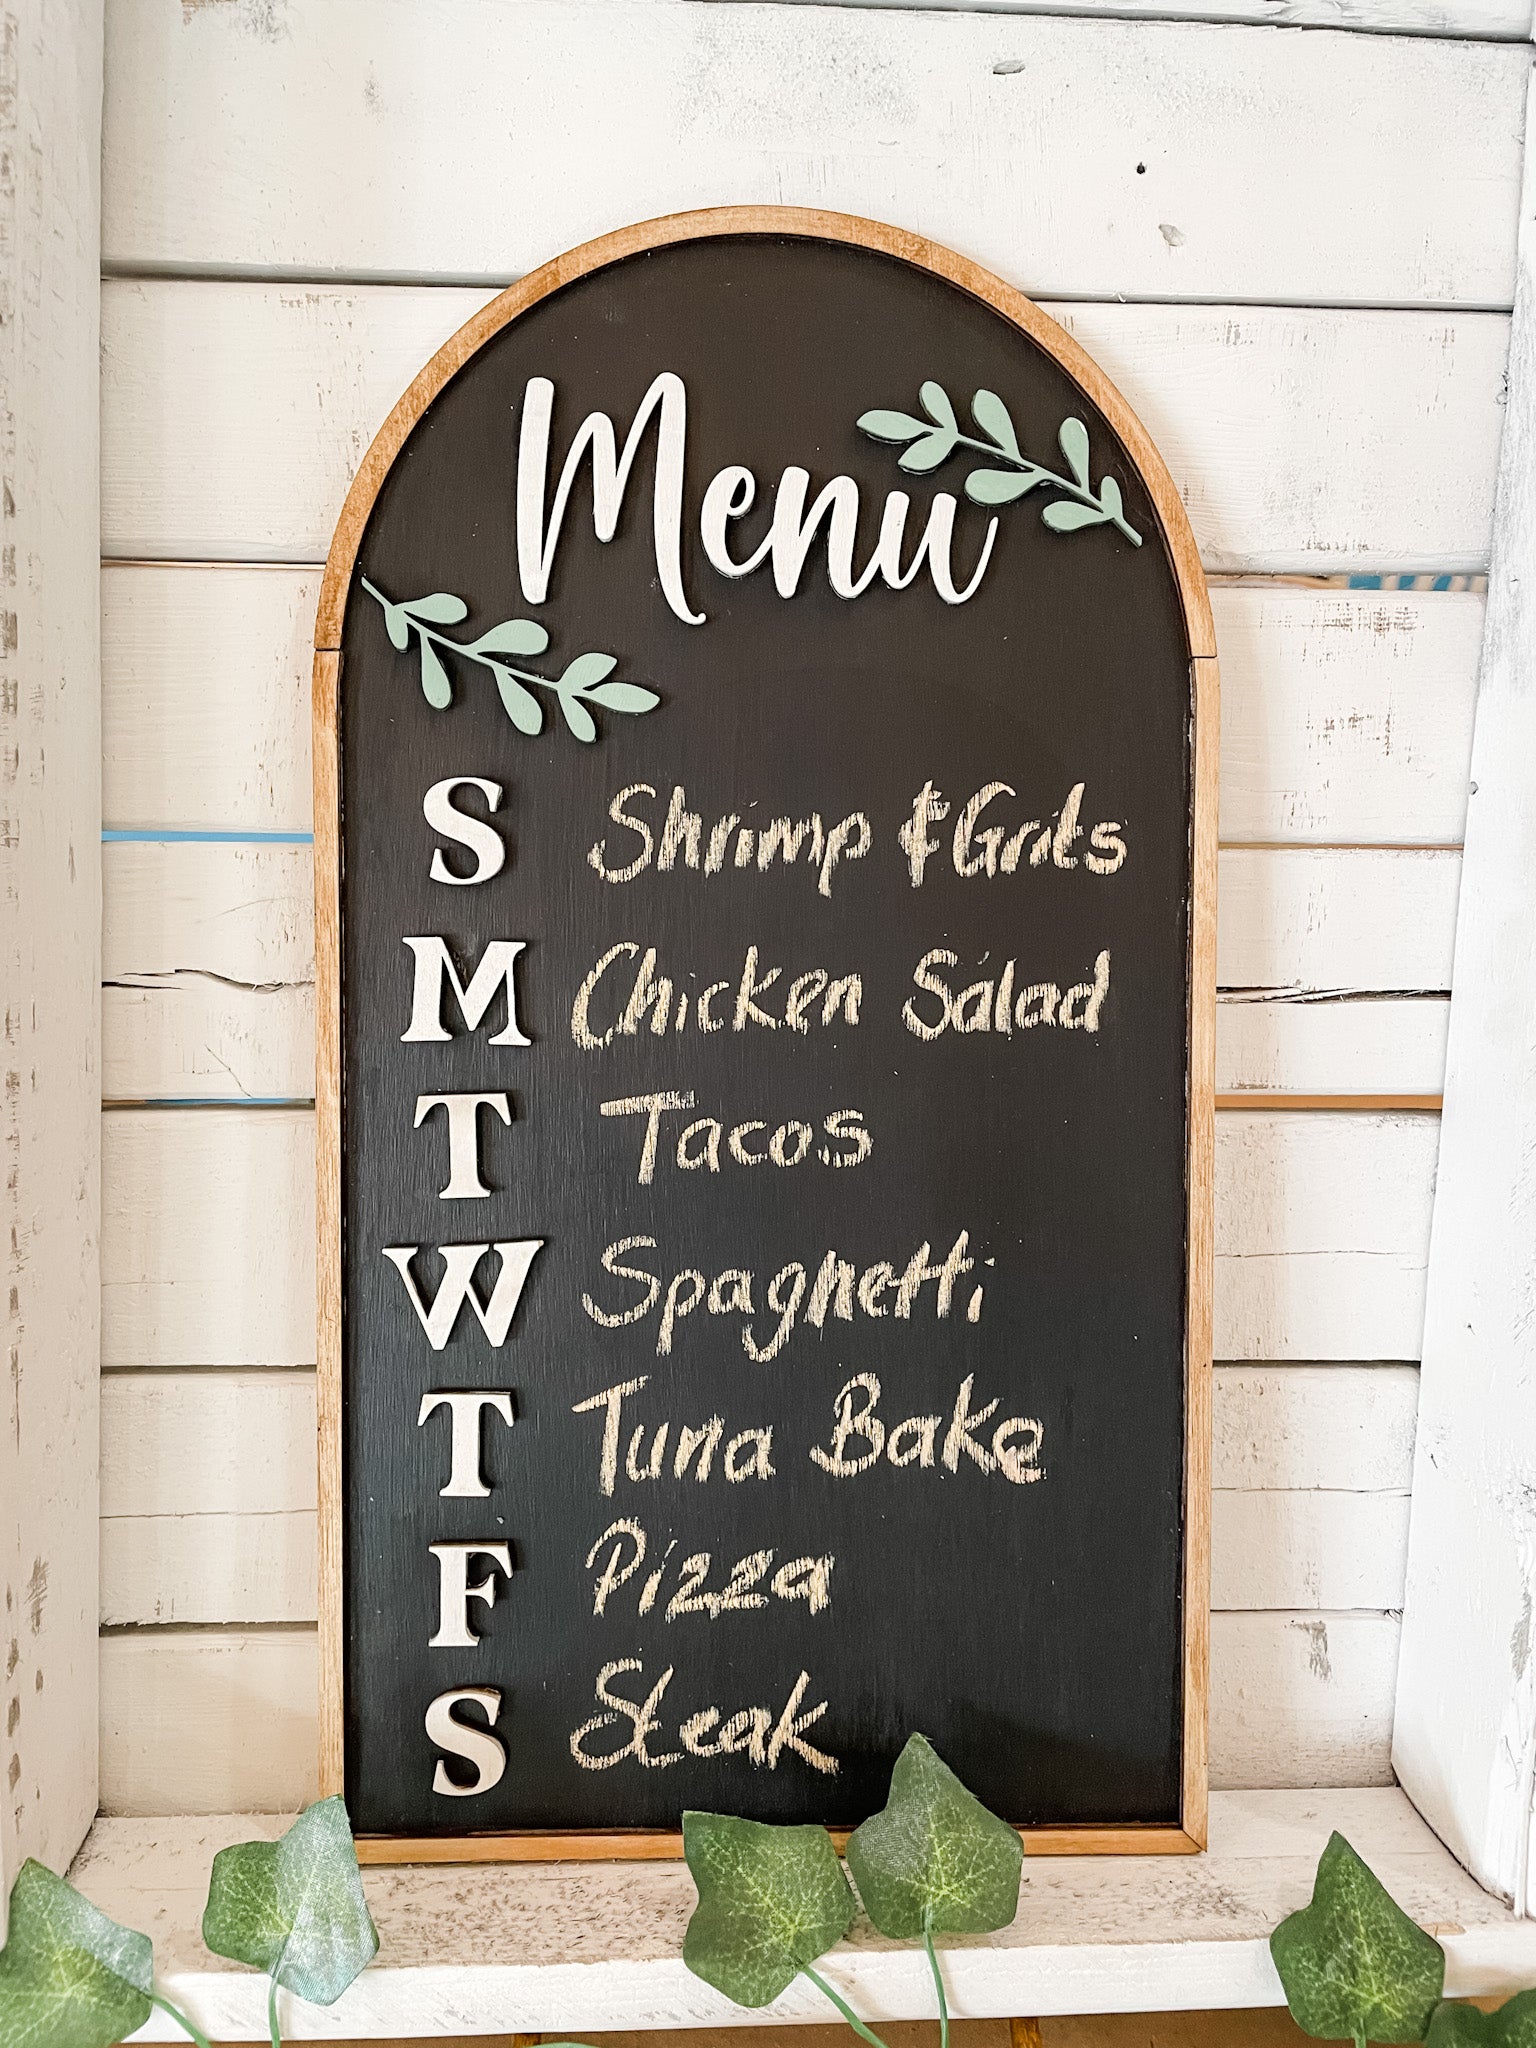 Menu
S Shrimp & Grits
M Chicken Salad
T Tacos
W Spaghetti
T Tuna Bake
F Pizza
S Steak